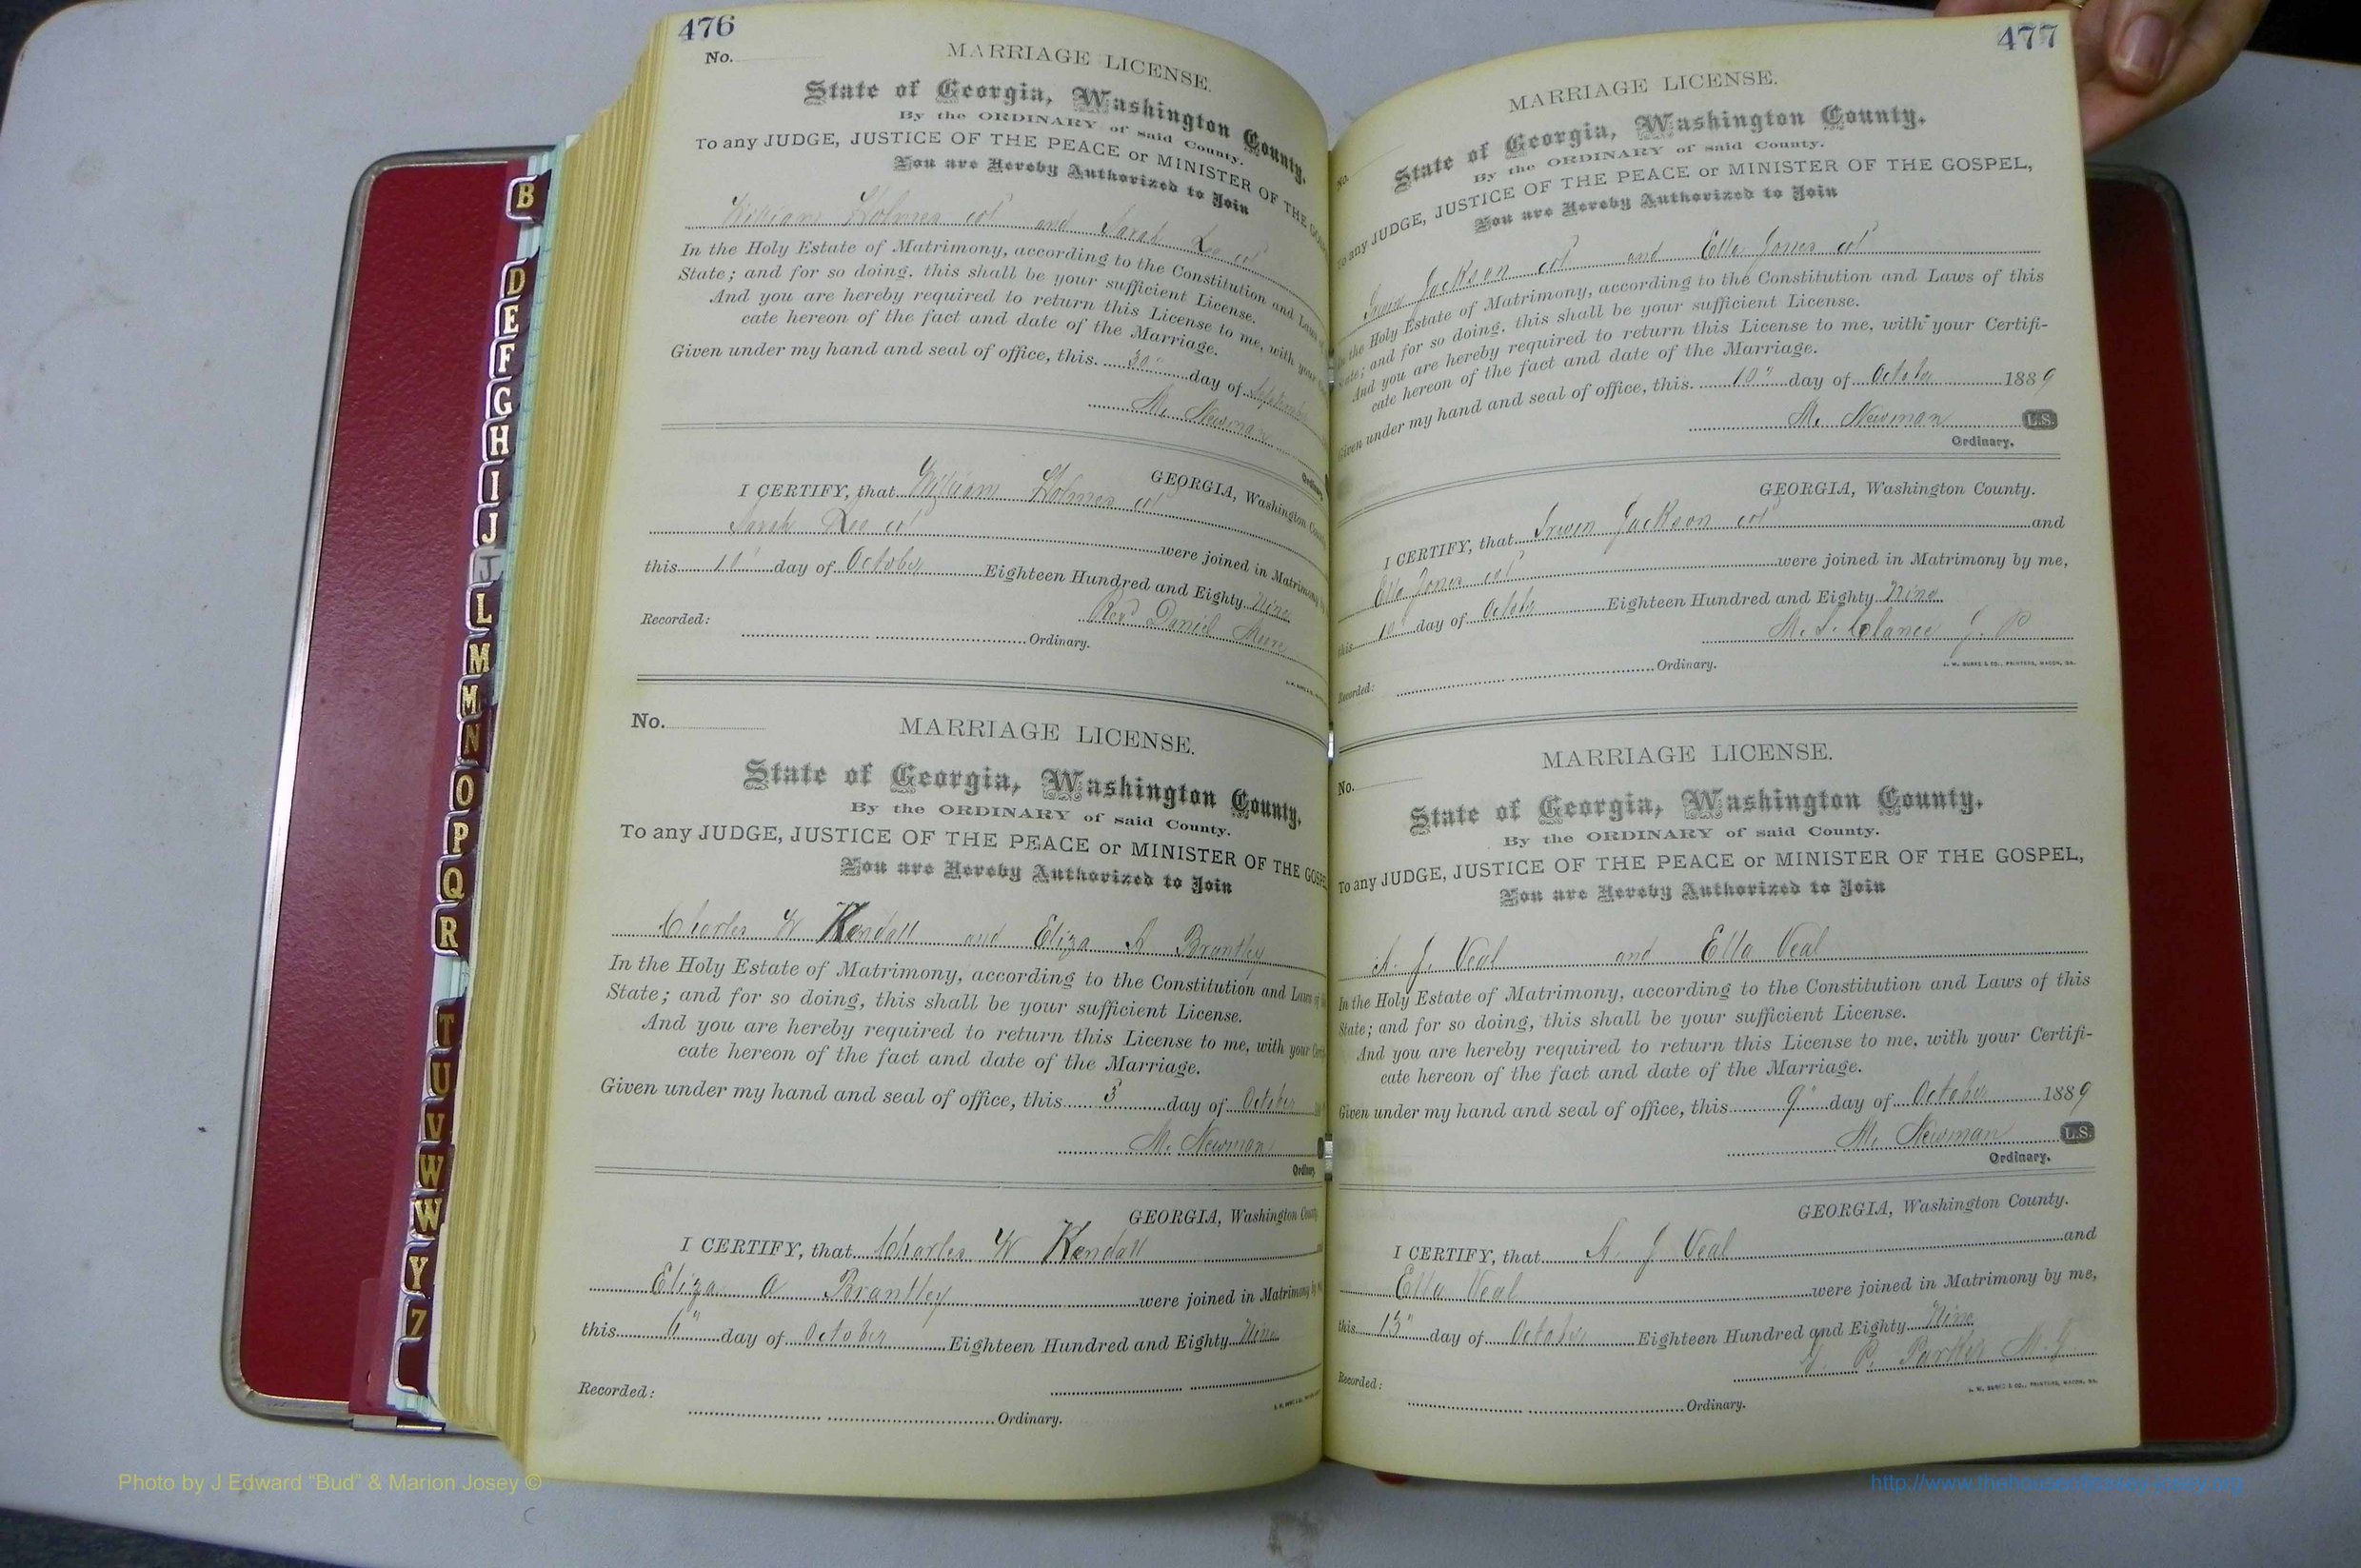 476
No.
MARRIAGE LICENSE.
State of Georgia, Washington County.
By the ORDINARY of said County.
To any JUDGE, JUSTICE OF THE PEACE or MINISTER OF THE GOS
You are Hereby Authorized to Join
William Holmes col and Sarah Lee col
In the Holy Estate of Matrimony, according to the Constitution and Laws
State; and for so doing, this shall be your sufficient License.
And you are hereby required to return this License to me, with your
cate hereon of the fact and date of the Marriage.
Given under my hand and seal of office, this 30" day of September
M. Newman
Ordinary
GEORGIA, Washington County
I CERTIFY, that William Holmes col
Sarah Lee col were joined in Matrimony
this 10" day of October Eighteen Hundred and Eighty Nine
Revd Daniel
Recorded: Ordinary.
No.
MARRIAGE LICENSE.
State of Georgia, Washington County.
By the ORDINARY of said County.
To any JUDGE, JUSTICE OF THE PEACE or MINISTER OF THE GOSPEL
You are Hereby Authorized to Join
Charles W Kendall and Eliza A Brantley
In the Holy Estate of Matrimony, according to the Constitution and Laws of
State; and for so doing, this shall be your sufficient License.
And you are hereby required to return this License to me, with your Certi
cate hereon of the fact and date of the Marriage.
Given under my hand and seal of office, this 3 day of October
M. Newman
Ordinary
GEORGIA, Washington Count
I CERTIFY, that Charles W Kendall
Eliza A Brantley were joined in Matrimony by
this 6" day of October Eighteen Hundred and Eighty Nine
Recorded:
Ordinary.
477
No.
MARRIAGE LICENSE.
State of Georgia, Washington County.
By the ORDINARY of said County.
To any JUDGE, JUSTICE OF THE PEACE or MINISTER OF THE GOSPEL,
You are Hereby Authorized to Join
Irwin Jackson col and Ella Jones col
the Holy Estate of Matrimony, according to the Constitution and Laws of this
State; and for so doing, this shall be your sufficient License.
And you are hereby required to return this License to me, with your Certifi-
cate hereon of the fact and date of the Marriage.
Given under my hand and seal of office, this 10" day of October 1889
M. Newman L.S.
Ordinary.
GEORGIA, Washington County.
I CERTIFY, that Irwin Jackson col and
Ella Jones col were joined in Matrimony by me,
this 10" day of October Eighteen Hundred and Eighty Nine
J. P.
J. W. BURKE & CO., PRINTERS, MACON, GA.
Recorded: Ordinary.
MARRIAGE LICENSE.
No.
State of Georgia, Washington County.
By the ORDINARY of said County.
To any JUDGE, JUSTICE OF THE PEACE or MINISTER OF THE GOSPEL,
You are Hereby Authorized to Join
A. J. Veal and Ella Veal
In the Holy Estate of Matrimony, according to the Constitution and Laws of this
State; and for so doing, this shall be your sufficient License.
And you are hereby required to return this License to me, with your Certifi-
cate hereon of the fact and date of the Marriage.
Given under my hand and seal of office, this 9" day of October 1889
M. Newman L.S.
Ordinary.
GEORGIA, Washington County.
I CERTIFY, that A. J Veal and
Ella Veal were joined in Matrimony by me,
this 13" day of October Eighteen Hundred and Eighty Nine
P. Parker M. G.
J. W. BURKE & CO., PRINTERS, MACON, GA.
Recorded: Ordinary.
B
D
E
F
G
H
I
J
J
L
M
M
N
O
P
Q
R
T
U
V
W
W
Y
Z
Photo by J Edward “Bud” & Marion Josey ©